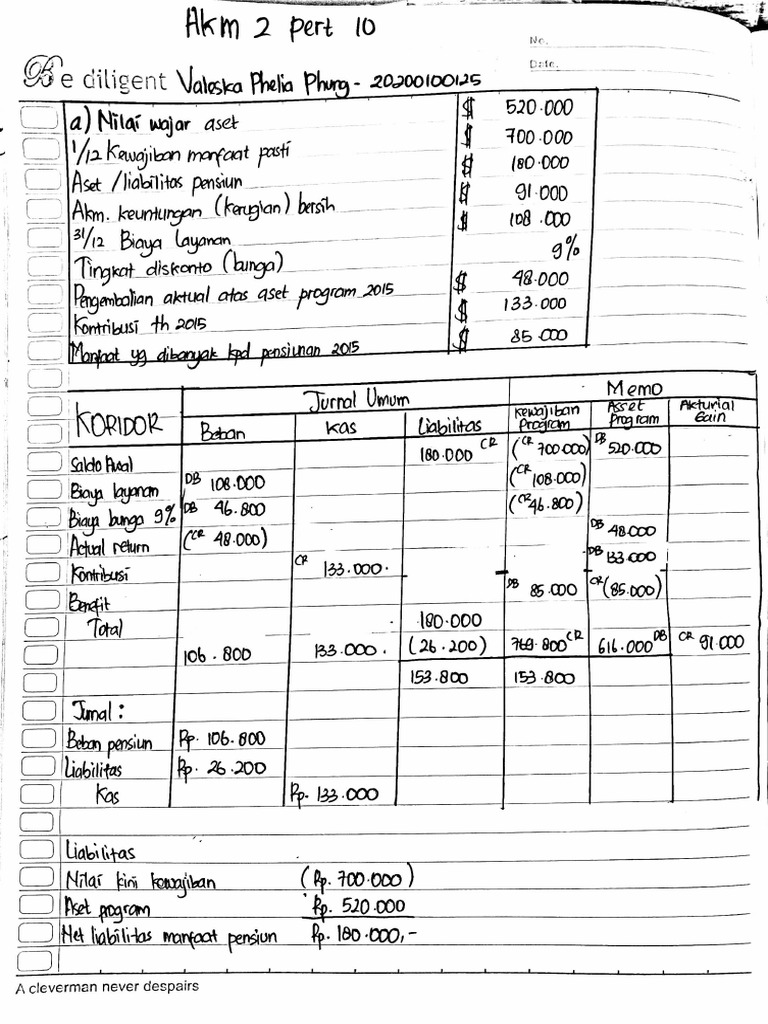 Akm 2 pert 10
No.
Date.
Be diligent Valeska Phelia Phung - 20200100125
a) Nilai wajar aset $ 520.000
1/12 Kewajiban manfaat pasti $ 700.000
Aset / liabilitas pensiun $ 180.000
Akm. keuntungan (kerugian) bersih $ 91.000
31/12 Biaya layanan $ 108.000
Tingkat diskonto (bunga) 9%
Pengembalian aktual atas aset program 2015 $ 48.000
Kontribusi th 2015 $ 133.000
Manfaat yg dibanyak kpd pensiunan 2015 $ 85.000
KORIDOR Jurnal Umum Memo
Beban Kas Liabilitas Kewajiban Program Asset Program Akturial Gain
Saldo Awal 180.000 CR (CR 700.000) DB 520.000
Biaya layanan DB 108.000 (CR 108.000)
Biaya bunga 9% DB 46.800 (CR 46.800)
Actual return (CR 48.000) DB 48.000
Kontribusi CR 133.000. DB 133.000
Benefit DB 85.000 CR (85.000)
Total 180.000
106.800 133.000. (26.200) 769.800 CR 616.000 DB CR 91.000
153.800 153.800
Jurnal :
Beban pensiun Rp. 106.800
Liabilitas Rp. 26.200
Kas Rp. 133.000
Liabilitas
Nilai kini kewajiban (Rp. 700.000)
Aset program Rp. 520.000
Net liabilitas manfaat pensiun Rp. 180.000,-
A cleverman never despairs